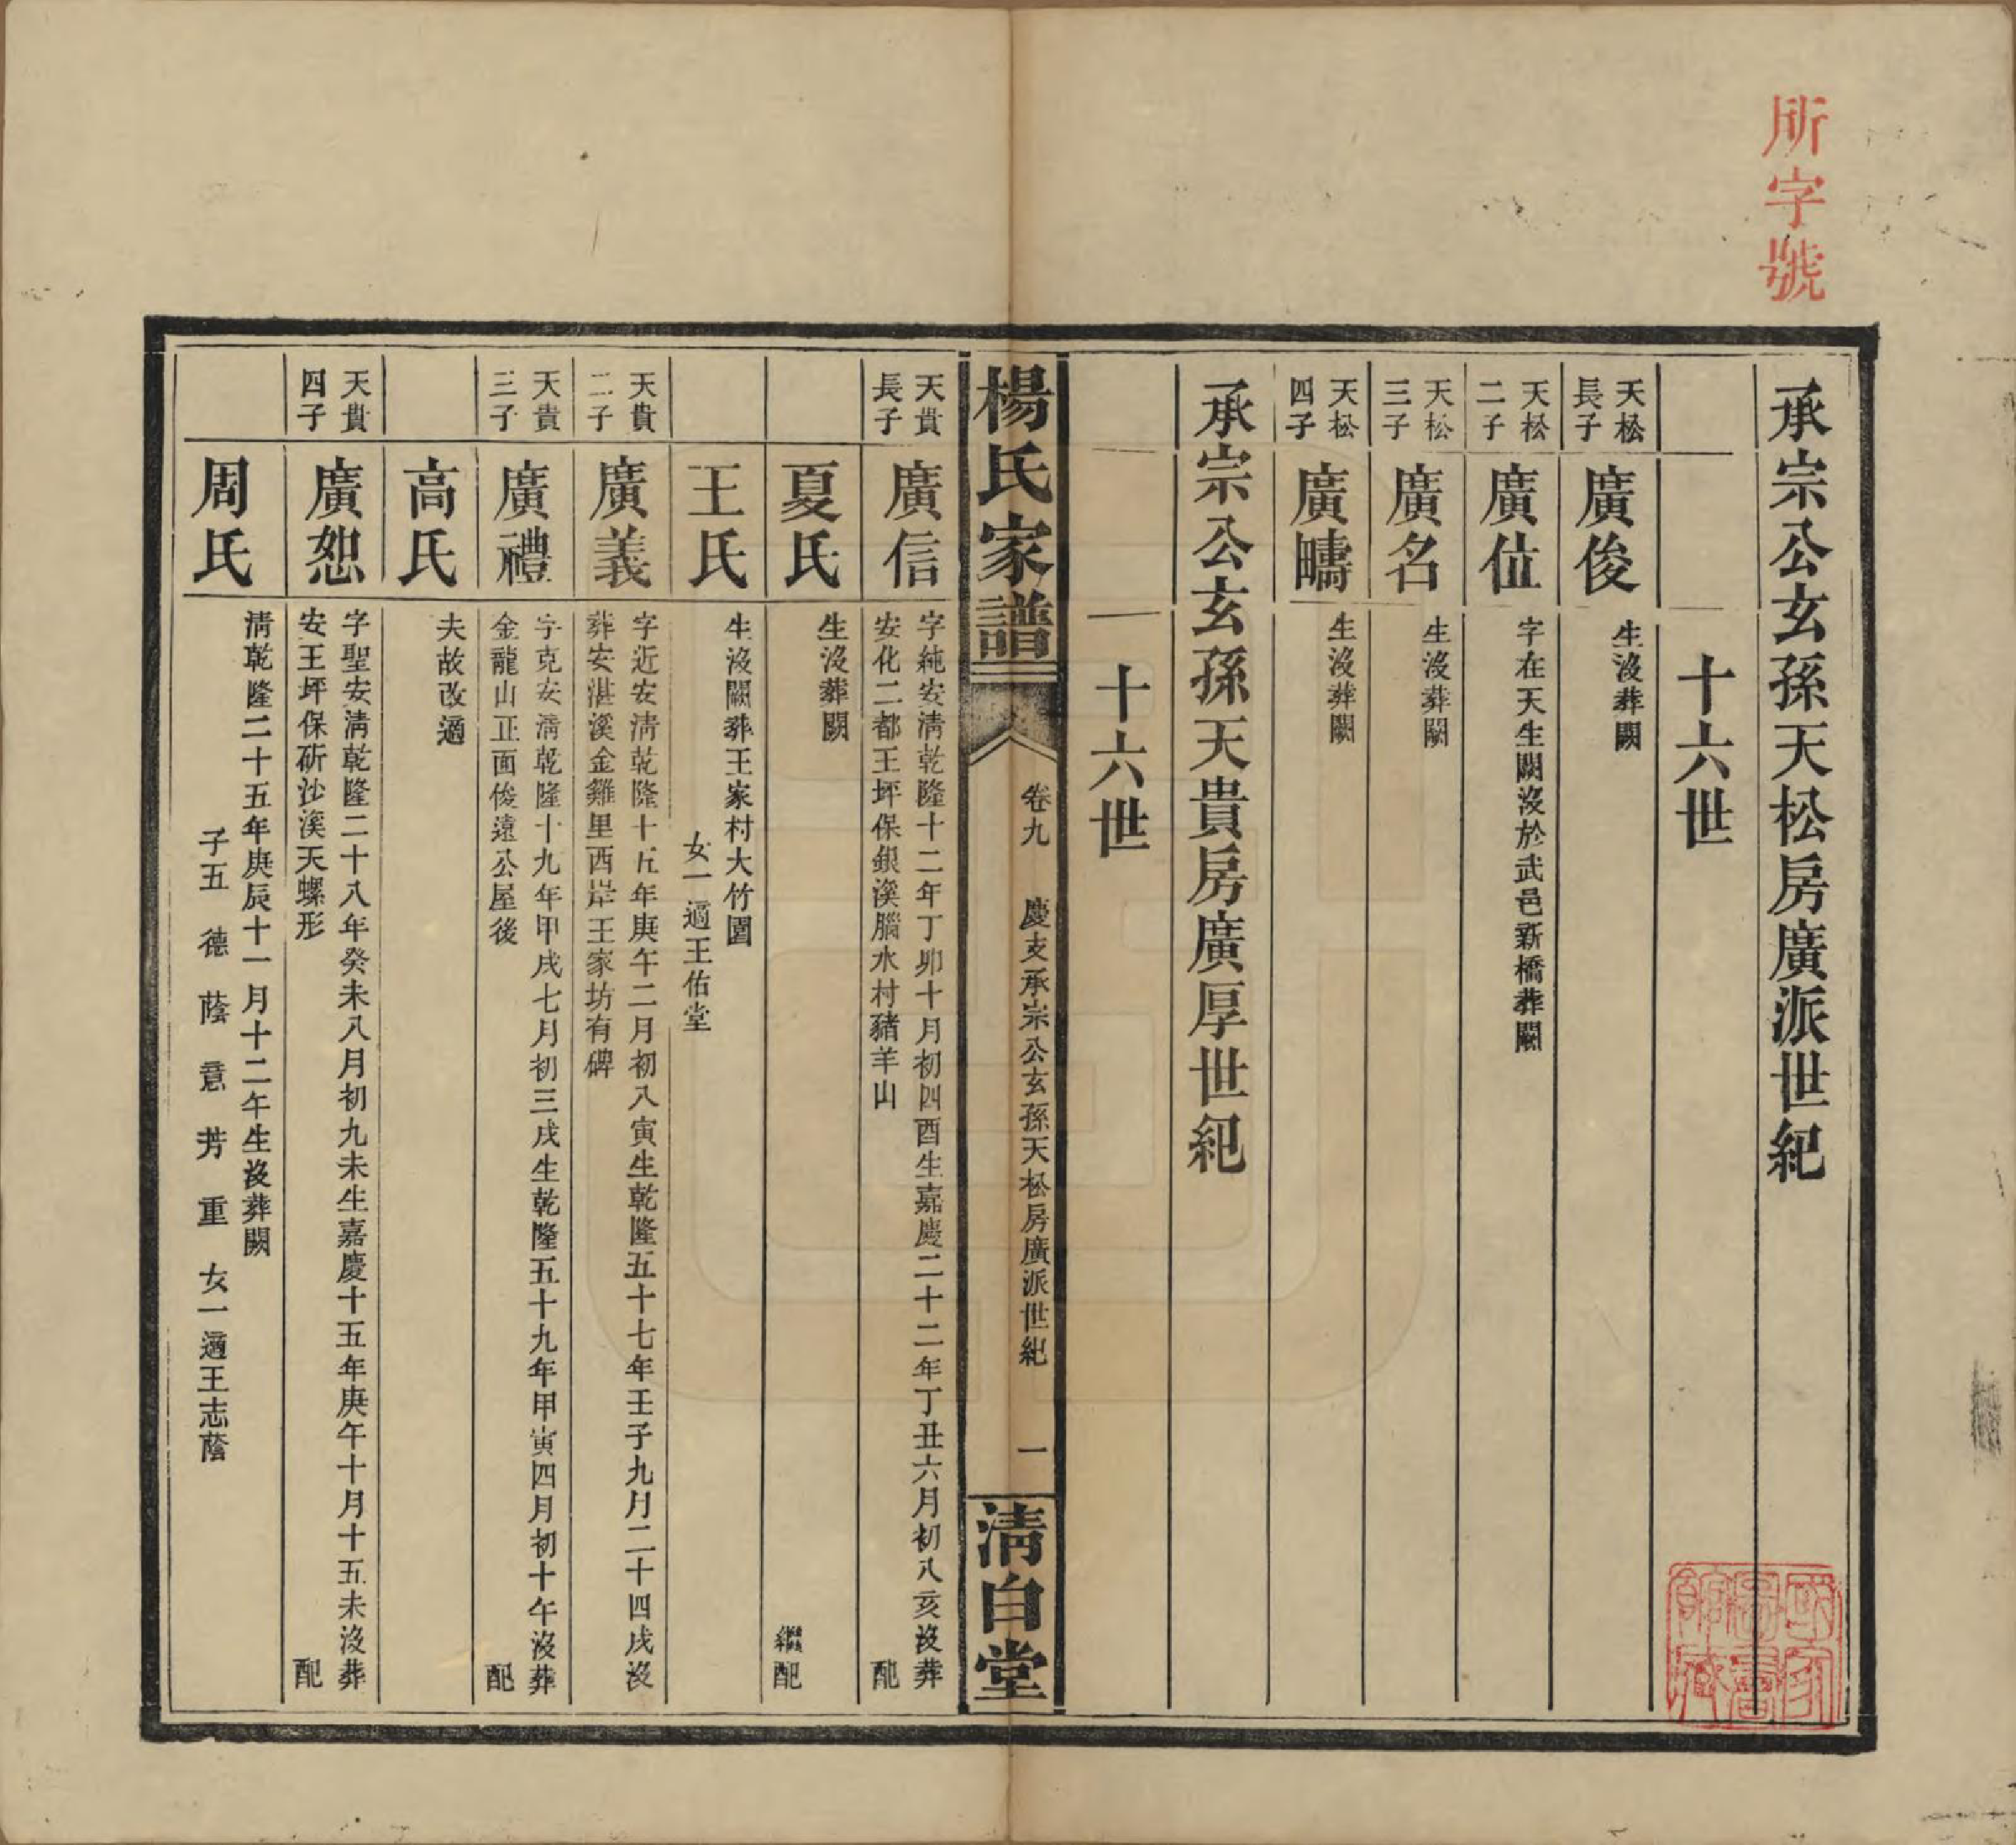 所字號
承宗公玄孫天松房廣派世紀
十六世
天松
長子
廣俊
生沒葬闕
天松
二子
廣位
字在天生闕沒於武邑新橋葬闕
天松
三子
廣名
生沒葬闕
天松
四子
廣疇
生沒葬闕
承宗公玄孫天貴房廣厚世紀
十六世
楊氏家譜
卷九
慶支承宗公玄孫天松房廣派世紀
一
清白堂
天貴
長子
廣信
字純安清乾隆十二年丁卯十月初四酉生嘉慶二十二年丁丑六月初八亥沒葬
安化二都王坪保銀溪腦水村豬羊山
配
夏氏
生沒葬闕
繼配
王氏
生沒闕葬王家村大竹園
女一適王佑堂
天貴
二子
廣義
字近安清乾隆十五年庚午二月初八寅生乾隆五十七年壬子九月二十四戌沒
葬安湛溪金雞里西岸王家坊有碑
天貴
三子
廣禮
字克安清乾隆十九年甲戌七月初三戌生乾隆五十九年甲寅四月初十午沒葬
金龍山正面俊遠公屋後
配
高氏
夫故改適
天貴
四子
廣恕
字聖安清乾隆二十八年癸未八月初九未生嘉慶十五年庚午十月十五未沒葬
安王坪保斫沙溪天螺形
配
周氏
清乾隆二十五年庚辰十一月十二午生沒葬闕
子五 德 蔭 意 芳 重 女一適王志蔭
國家
圖書
館藏